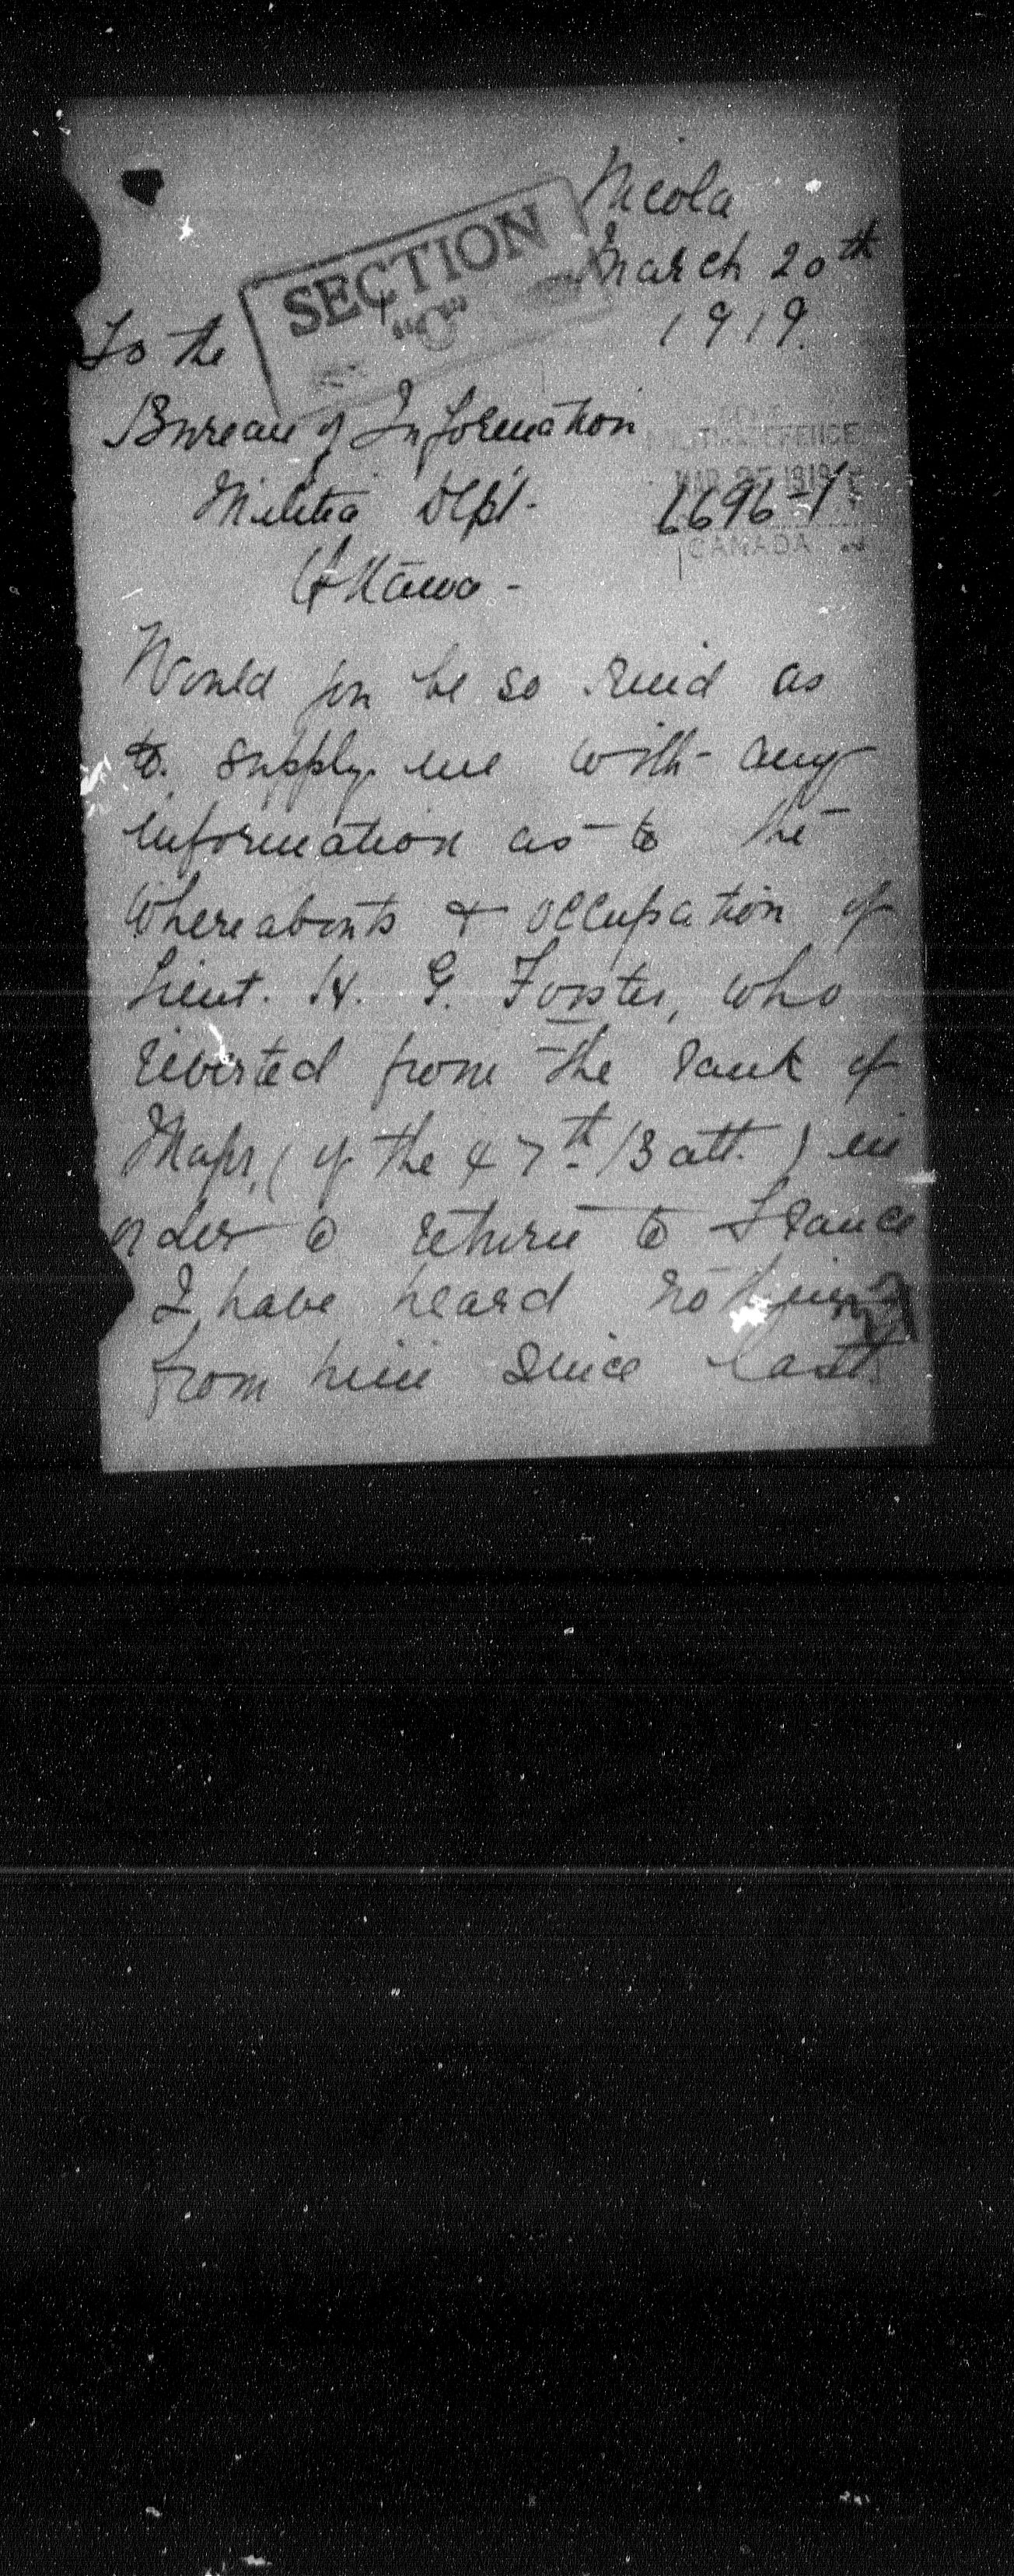 Nicola
March 20th
1919.
SECTION
"C"
To the
Bureau of Information
Militia Dept.
6696-1
MILITIA DEFENCE
MAR 25 1919
CANADA
Ottawa -
Would you be so kind as
to supply me with any
information as to the
whereabouts & occupation of
Lieut. H. G. Forster, who
reverted from the rank of
Major, (of the 47th Batt.) in
order to return to France
I have heard nothing
from him since last